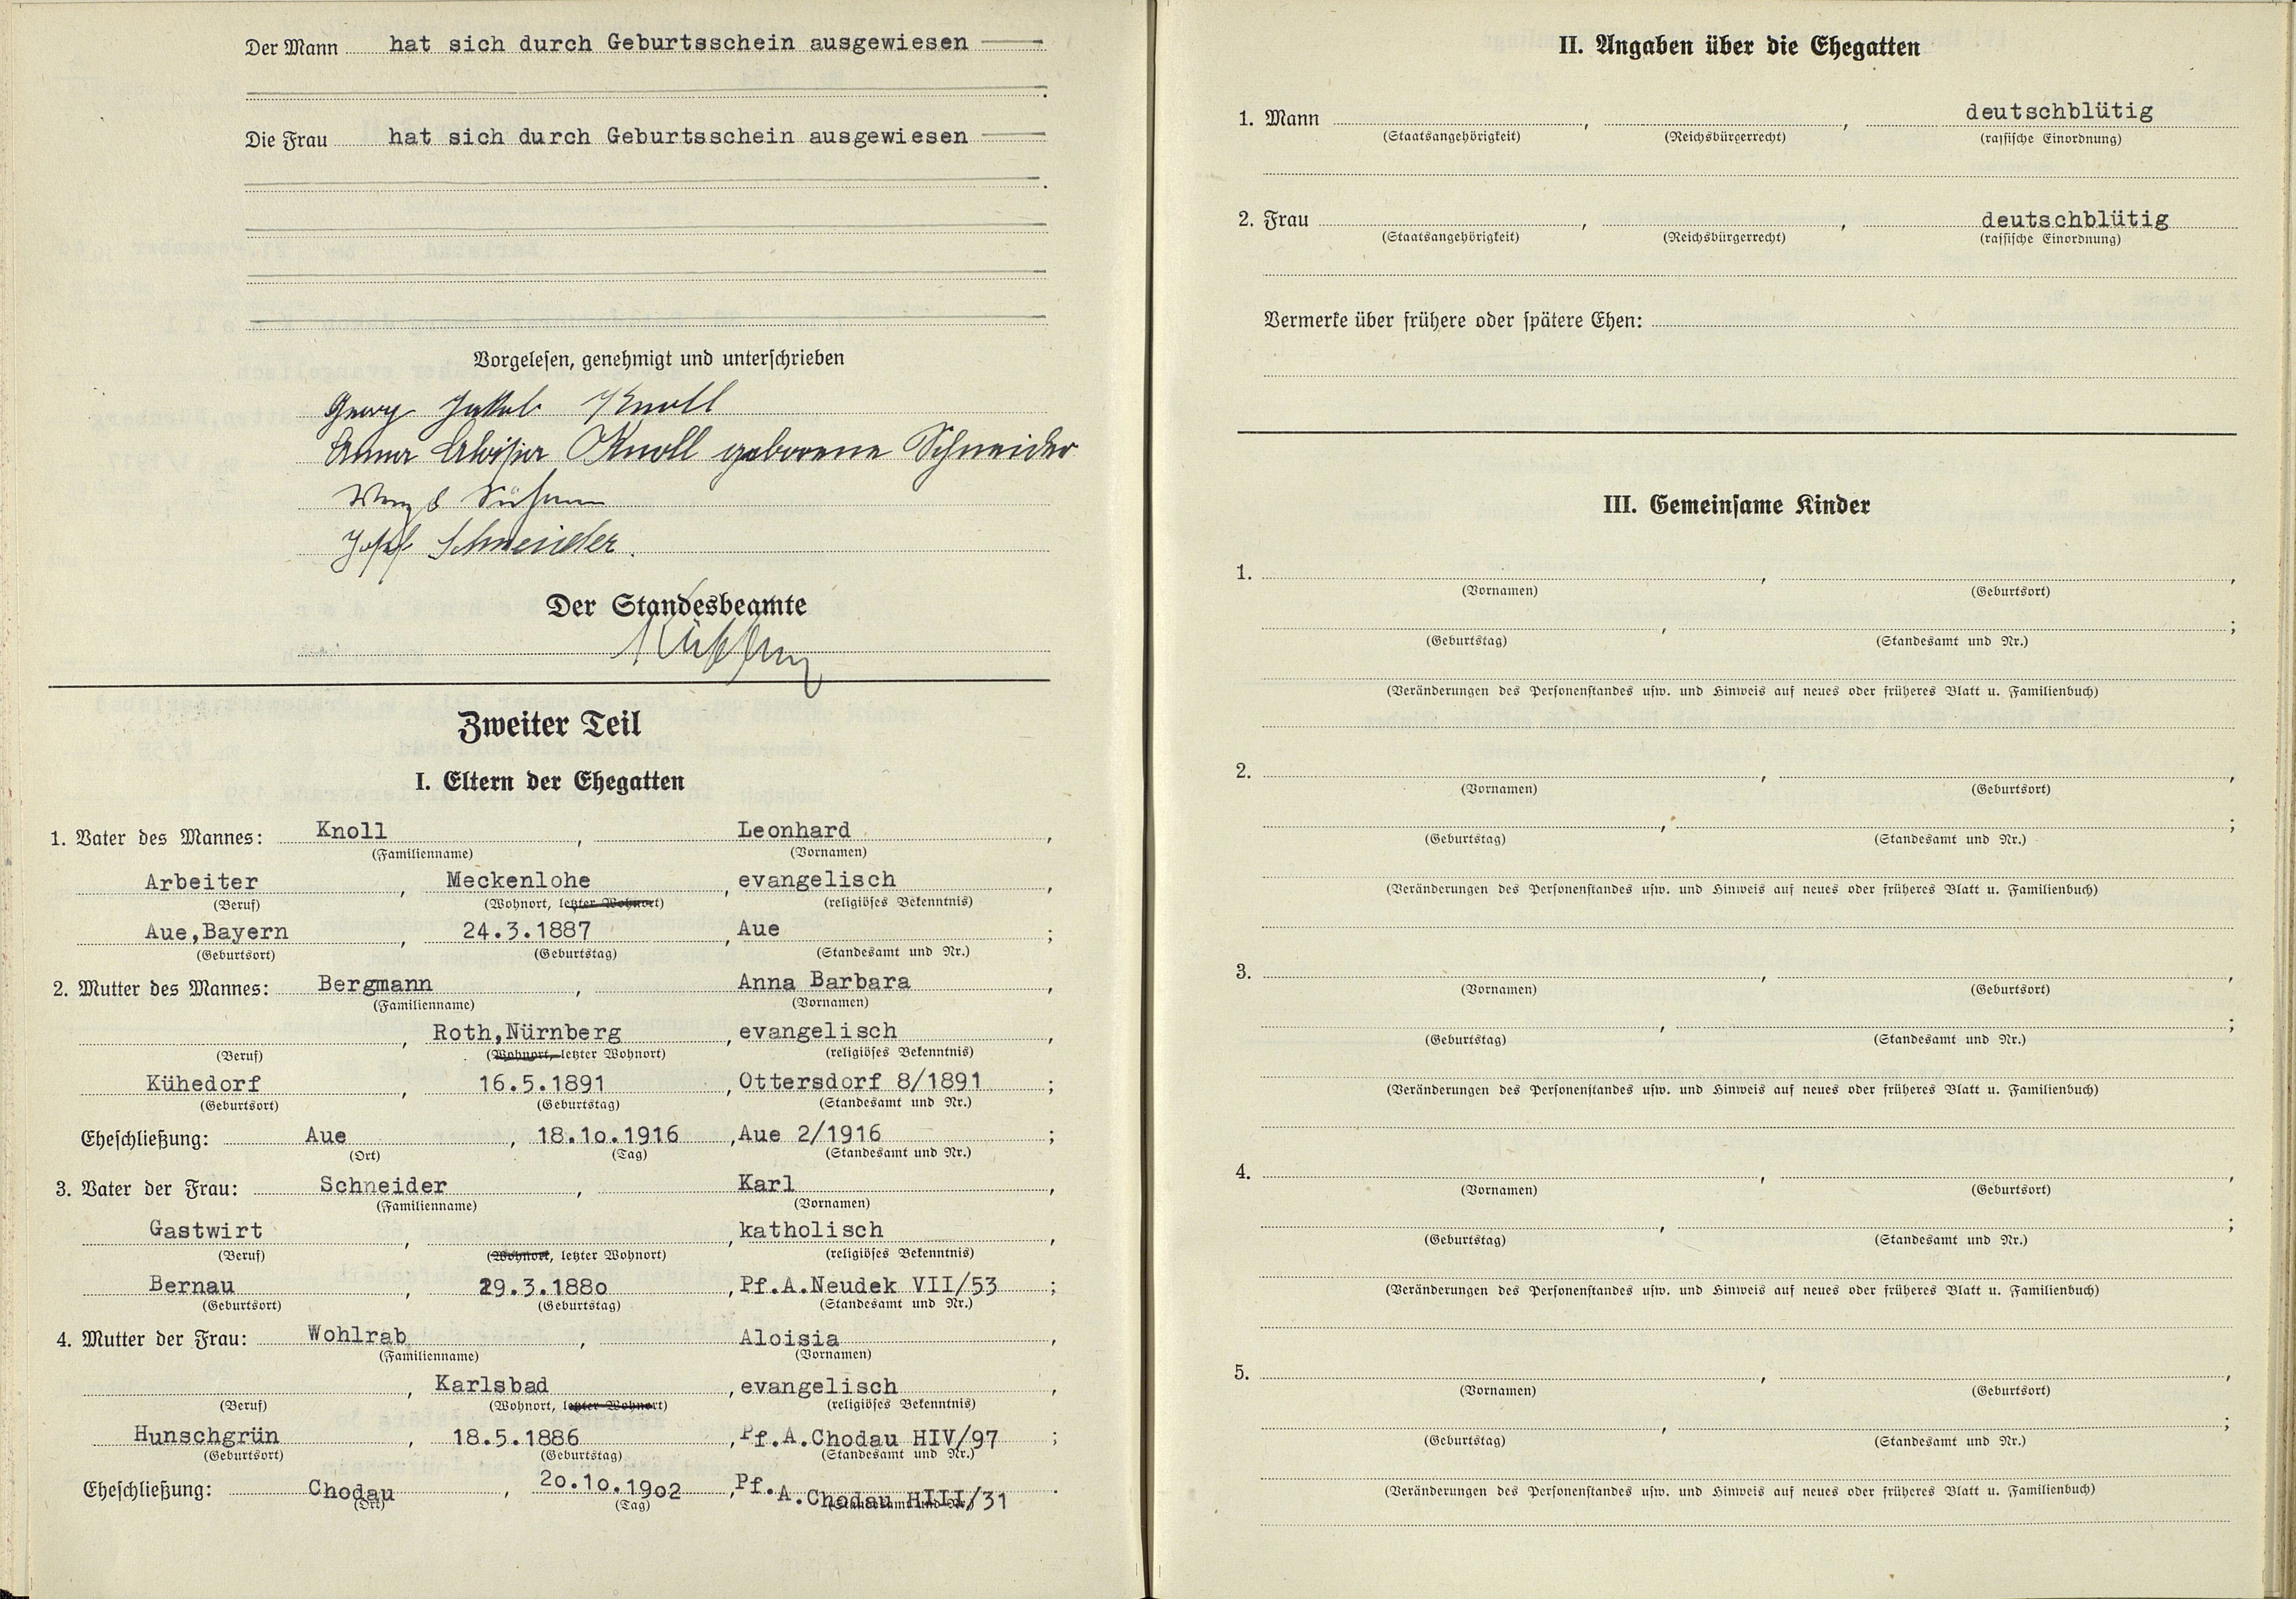 Der Mann hat sich durch Geburtsschein ausgewiesen
Die Frau hat sich durch Geburtsschein ausgewiesen
Vorgelesen, genehmigt und unterschrieben
Georg Jakob Knoll
Anna Aloisia Knoll geborene Schneider
Josef Schneider.
Der Standesbeamte
Zweiter Teil
I. Eltern der Ehegatten
1. Vater des Mannes: Knoll, Leonhard,
(Familienname) (Vornamen)
Arbeiter, Meckenlohe, evangelisch,
(Beruf) (Wohnort, letzter Wohnort) (religiöses Bekenntnis)
Aue,Bayern, 24.3.1887, Aue;
(Geburtsort) (Geburtstag) (Standesamt und Nr.)
2. Mutter des Mannes: Bergmann, Anna Barbara,
(Familienname) (Vornamen)
, Roth,Nürnberg, evangelisch,
(Beruf) (Wohnort, letzter Wohnort) (religiöses Bekenntnis)
Kühedorf, 16.5.1891, Ottersdorf 8/1891;
(Geburtsort) (Geburtstag) (Standesamt und Nr.)
Eheschließung: Aue, 18.1o.1916, Aue 2/1916;
(Ort) (Tag) (Standesamt und Nr.)
3. Vater der Frau: Schneider, Karl,
(Familienname) (Vornamen)
Gastwirt, , katholisch,
(Beruf) (Wohnort, letzter Wohnort) (religiöses Bekenntnis)
Bernau, 29.3.188o, Pf.A.Neudek VII/53;
(Geburtsort) (Geburtstag) (Standesamt und Nr.)
4. Mutter der Frau: Wohlrab, Aloisia,
(Familienname) (Vornamen)
, Karlsbad, evangelisch,
(Beruf) (Wohnort, letzter Wohnort) (religiöses Bekenntnis)
Hunschgrün, 18.5.1886, Pf.A.Chodau HIV/97;
(Geburtsort) (Geburtstag) (Standesamt und Nr.)
Eheschließung: Chodau, 2o.1o.19o2, Pf.A.Chodau HIII/31.
(Ort) (Tag) (Standesamt und Nr.)
II. Angaben über die Ehegatten
1. Mann , , deutschblütig
(Staatsangehörigkeit) (Reichsbürgerrecht) (rassische Einordnung)
2. Frau , , deutschblütig
(Staatsangehörigkeit) (Reichsbürgerrecht) (rassische Einordnung)
Vermerke über frühere oder spätere Ehen:
III. Gemeinsame Kinder
1. , ,
(Vornamen) (Geburtsort)
, ;
(Geburtstag) (Standesamt und Nr.)
(Veränderungen des Personenstandes usw. und Hinweis auf neues oder früheres Blatt u. Familienbuch)
2. , ,
(Vornamen) (Geburtsort)
, ;
(Geburtstag) (Standesamt und Nr.)
(Veränderungen des Personenstandes usw. und Hinweis auf neues oder früheres Blatt u. Familienbuch)
3. , ,
(Vornamen) (Geburtsort)
, ;
(Geburtstag) (Standesamt und Nr.)
(Veränderungen des Personenstandes usw. und Hinweis auf neues oder früheres Blatt u. Familienbuch)
4. , ,
(Vornamen) (Geburtsort)
, ;
(Geburtstag) (Standesamt und Nr.)
(Veränderungen des Personenstandes usw. und Hinweis auf neues oder früheres Blatt u. Familienbuch)
5. , ,
(Vornamen) (Geburtsort)
, ;
(Geburtstag) (Standesamt und Nr.)
(Veränderungen des Personenstandes usw. und Hinweis auf neues oder früheres Blatt u. Familienbuch)